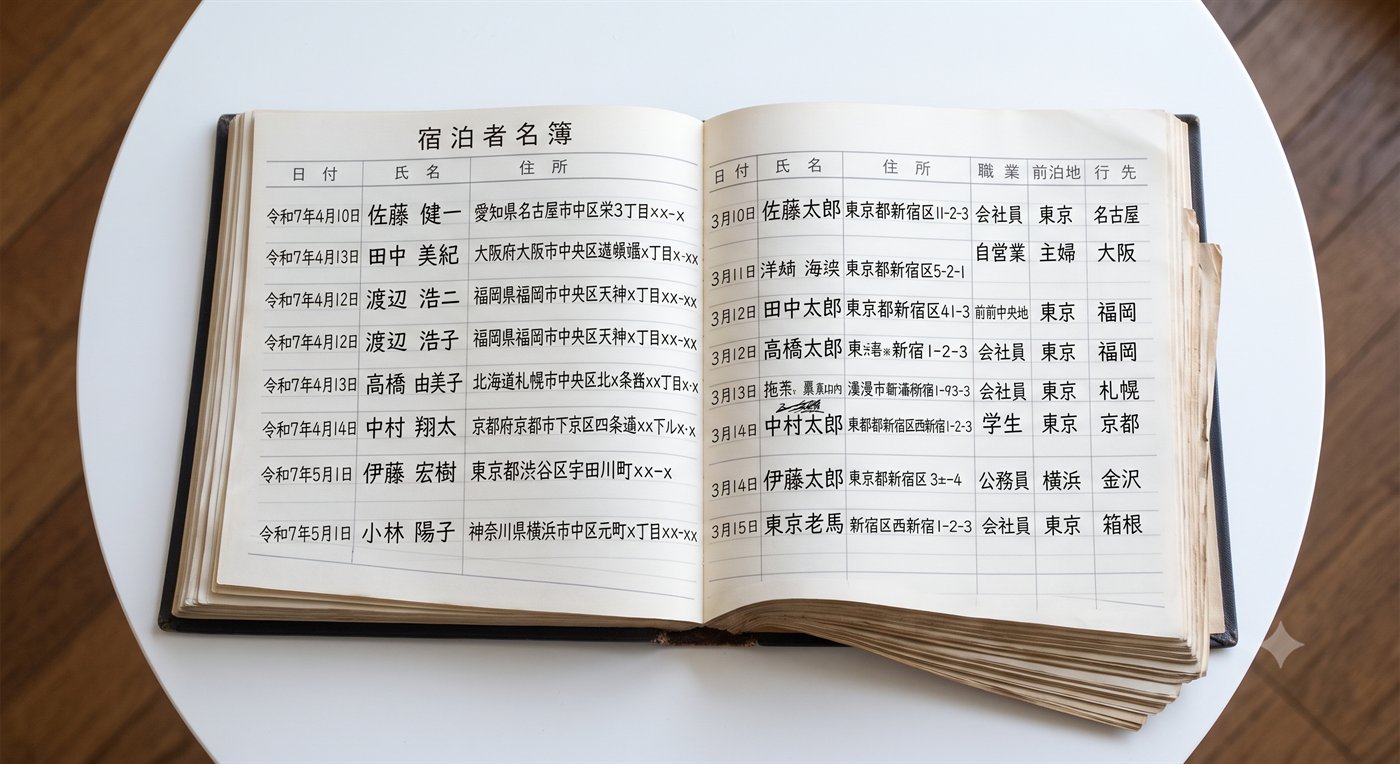 宿泊者名簿
日付 氏名 住所
令和7年4月10日 佐藤 健一 愛知県名古屋市中区栄3丁目××-×
令和7年4月13日 田中 美紀 大阪府大阪市中央区 ×丁目×-××
令和7年4月12日 渡辺 浩二 福岡県福岡市中央区天神×丁目××-××
令和7年4月12日 渡辺 浩子 福岡県福岡市中央区天神×丁目××-××
令和7年4月13日 高橋 由美子 北海道札幌市中央区北×条 ××丁目×-×
令和7年4月14日 中村 翔太 京都府京都市下京区四条通××下ル×-×
令和7年5月1日 伊藤 宏樹 東京都渋谷区宇田川町××-×
令和7年5月1日 小林 陽子 神奈川県横浜市中区元町×丁目××-××
日付 氏名 住所 職業 前泊地 行先
3月10日 佐藤太郎 東京都新宿区11-2-3 会社員 東京 名古屋
自営業 主婦 大阪
3月11日 洋 海 東京都新宿区5-2-1
3月12日 田中太郎 東京都新宿区41-3 前前中央地 東京 福岡
3月12日 高橋太郎 東 新宿1-2-3 会社員 東京 福岡
3月13日 1-93-3 会社員 東京 札幌
3月14日 中村太郎 東都都新宿区西新宿1-2-3 学生 東京 京都
3月14日 伊藤太郎 東京都新宿区 公務員 横浜 金沢
3月15日 東京老馬 新宿区西新宿1-2-3 会社員 東京 箱根